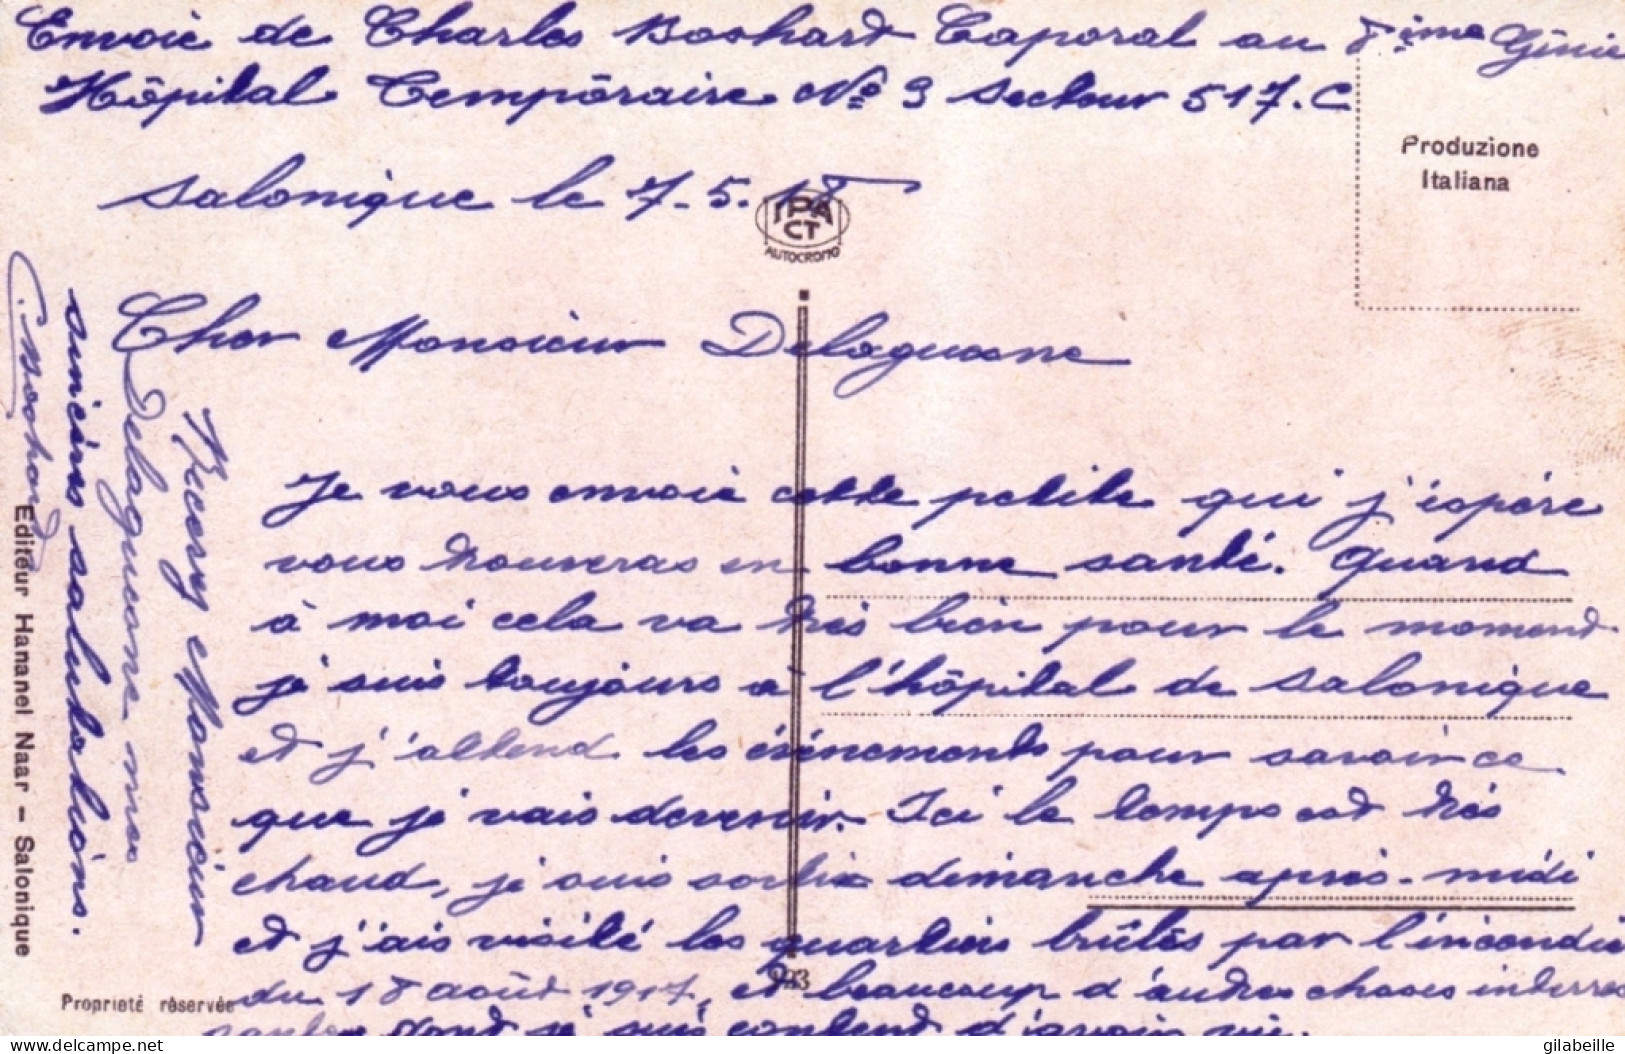 Envoie de Charles Boshard Caporal au 8ième Génie
Hôpital Temporaire No 3 Secteur 517.C
Produzione
Italiana
Salonique le 7-5.18
IPA
CT
AUTOCROMO
Cher Monsieur Delaguesne
Je vous envoie cette petite qui j'éspére
vous trouveras en bonne santé. Quand
à moi cela va très bien pour le moment
je suis toujours à l'hôpital de Salonique
et j'attend les événements pour savoir ce
que je vais devenir. Ici le temps est très
chaud, je suis sortie dimanche après-midi
et j'ais visité les quartiers brûlés par l'incendie
du 18 août 1917, et beaucoup d'autres choses interres
santes dont je suis content d'avoir vu.
Recevez Monsieur
Delaguesne mes
sincères salutations.
C. Boshard
Editeur Hananel Naar – Salonique
Proprieté réservée
993
gilabeille
delcampe.net